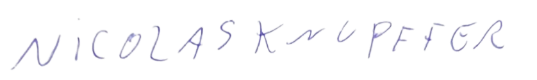 NICOLAS KNUPFFER